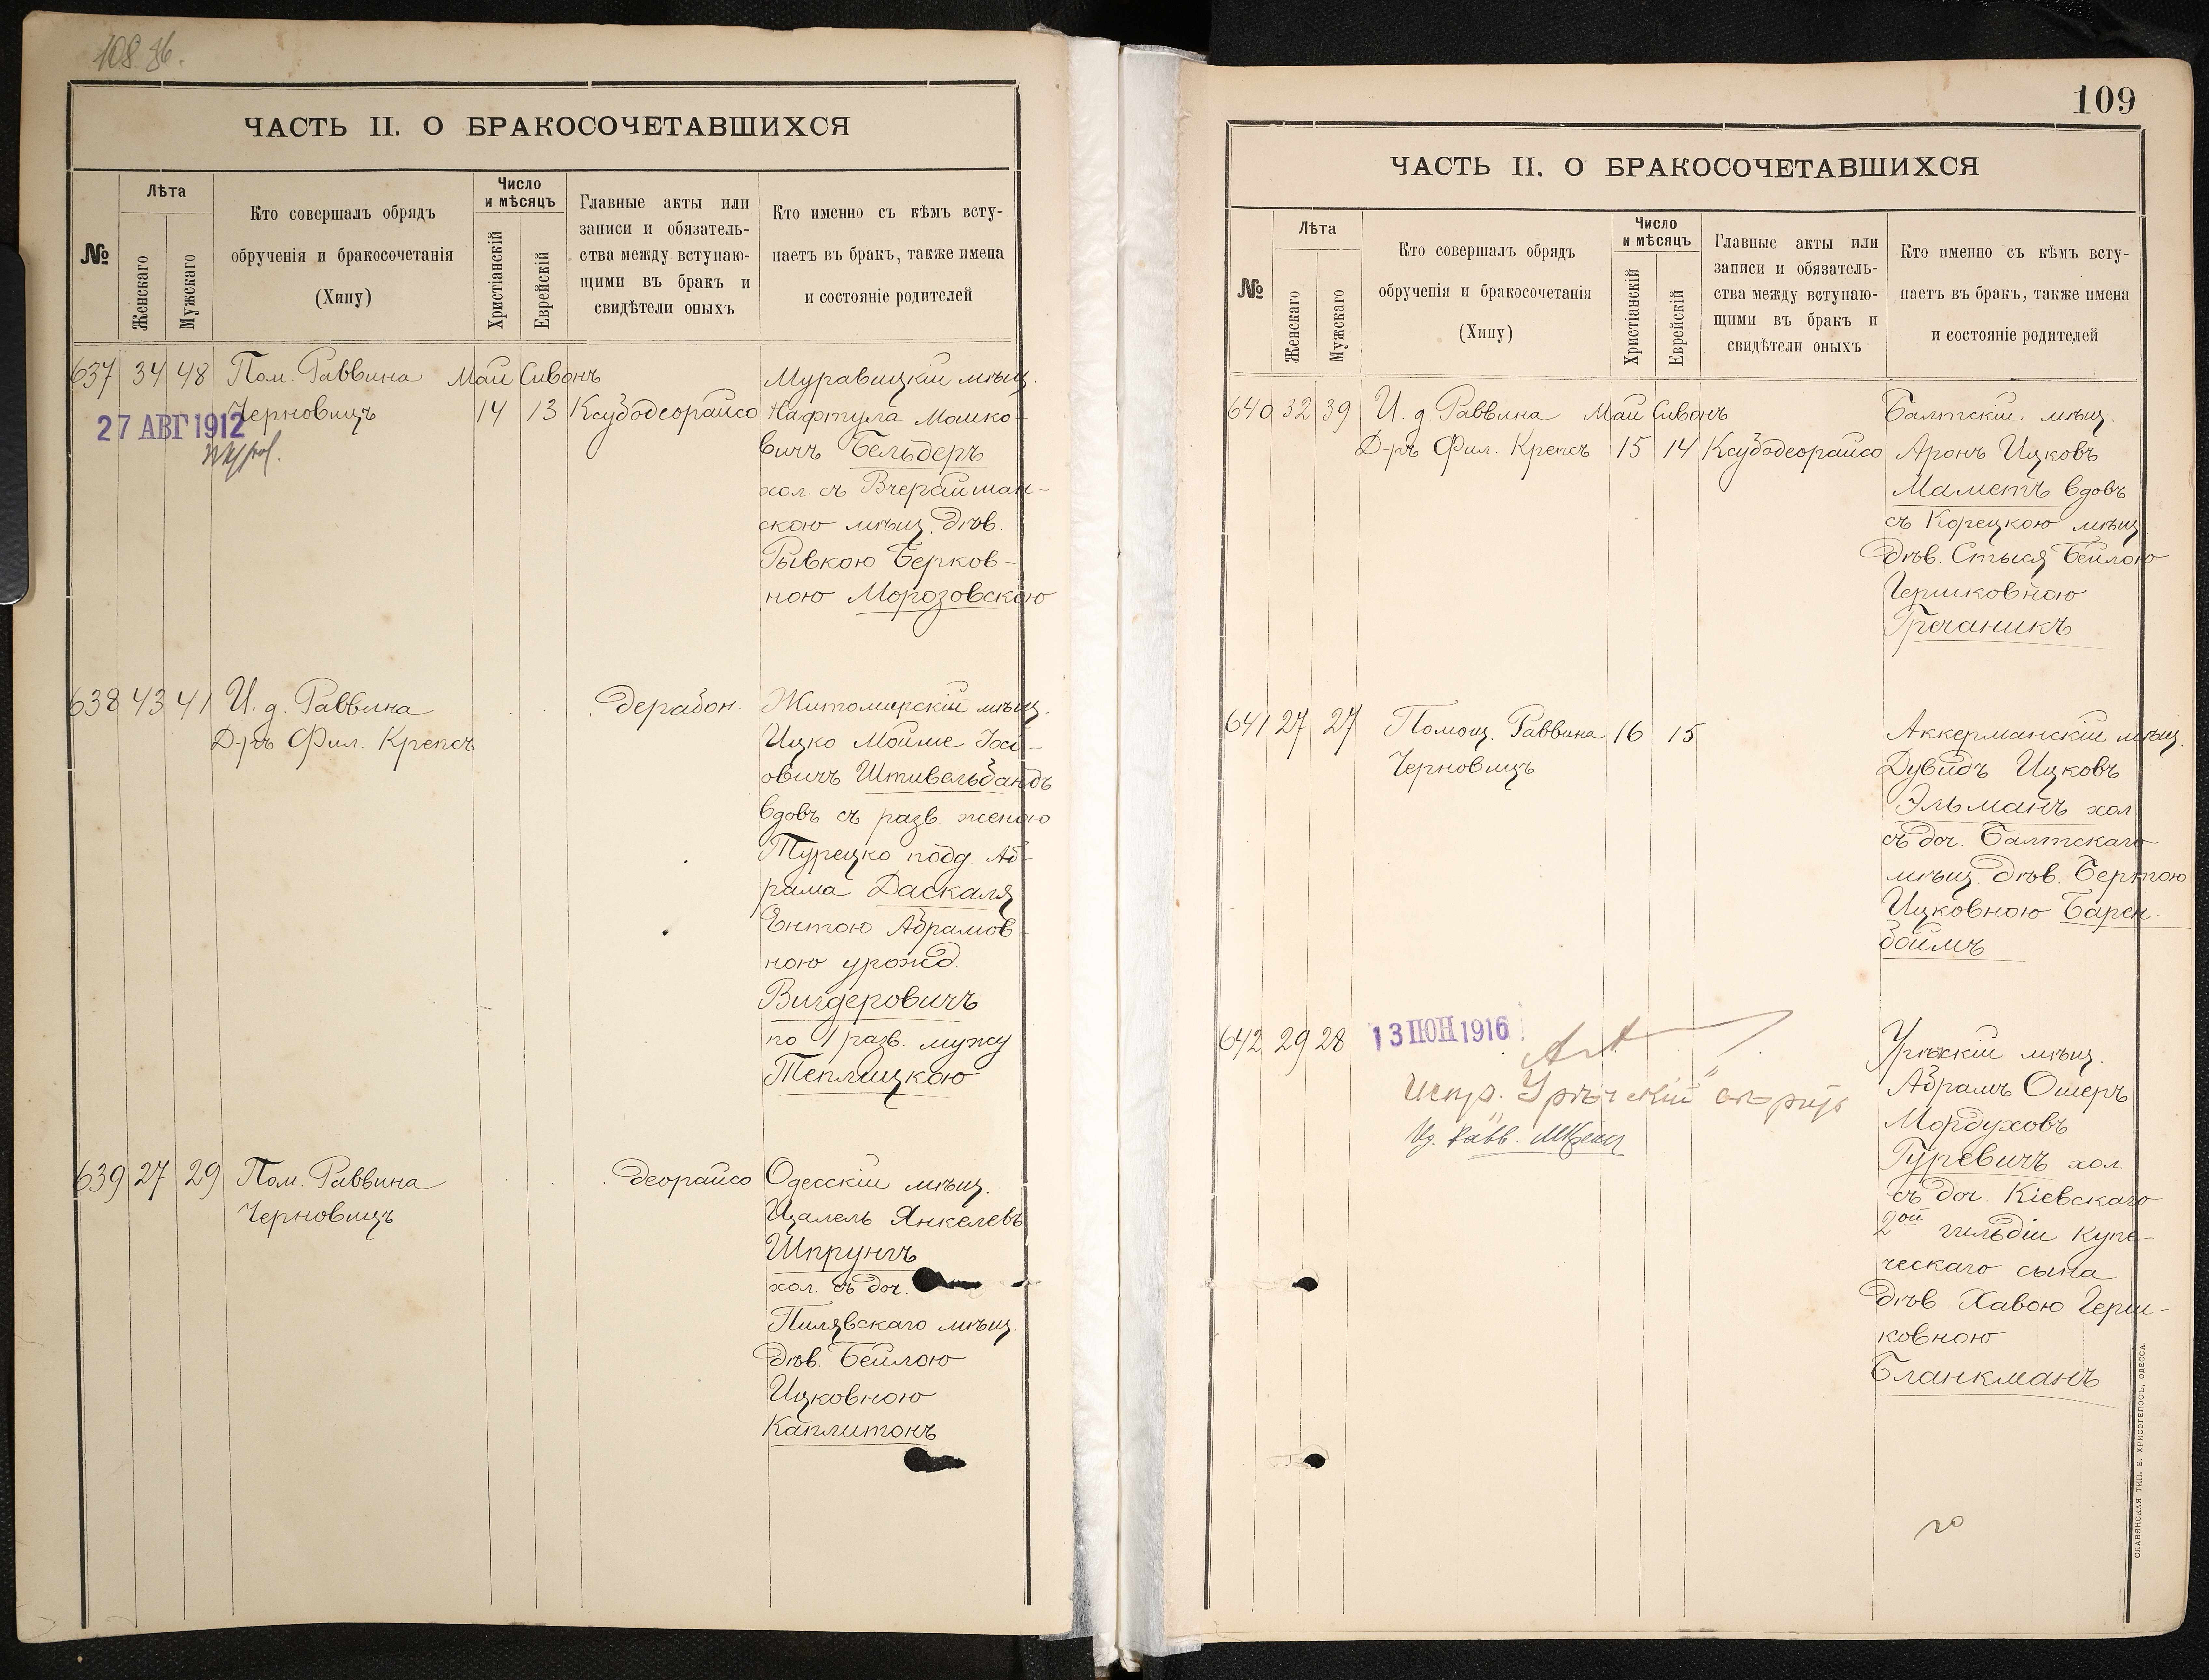 108. 86.
ЧАСТЬ II. О БРАКОСОЧЕТАВШИХСЯ
№
Лѣта
Женскаго
Мужскаго
Кто совершалъ обрядъ
обрученія и бракосочетанія
(Хипу)
Число
и мѣсяцъ
Христіанскій
Еврейскій
Главные акты или
записи и обязатель-
ства между вступаю-
щими въ бракъ и
свидѣтели оныхъ
Кто именно съ кѣмъ всту-
паетъ въ бракъ, также имена
и состояніе родителей
637 34 48 Пом. Раввина Май Сивонъ
Черновицъ 14 13 Ксубодеорайсо
27 АВГ 1912
Муравицкій мѣщ.
Нафтула Мошко-
вичъ Бельдеръ
хол. съ Вчерайшан-
скою мѣщ. Дѣв.
Рывкою Берков-
ною Морозовскою
638 43 41 И. д. Раввина
Д-ръ Фил. Крепсъ
дерабон.
Житомирскій мѣщ.
Ицко Мойше Іос-
овичъ Штивельбандъ
вдовъ съ разв. женою
Турецко подд. Аб-
рама Даскаля
Ентою Абрамов-
ною урожд.
Вигдеровичъ
по 1 разв. мужу
Теплицкою
639 27 29 Пом. Раввина
Черновицъ
деорайсо
Одесскій мѣщ.
Цалель Янкелевъ
Шпрунгъ
хол. съ доч.
Пилявскаго мѣщ.
Дѣв. Бейлою
Ицковною
Каплитонъ
109
ЧАСТЬ II. О БРАКОСОЧЕТАВШИХСЯ
№
Лѣта
Женскаго
Мужскаго
Кто совершалъ обрядъ
обрученія и бракосочетанія
(Хипу)
Число
и мѣсяцъ
Христіанскій
Еврейскій
Главные акты или
записи и обязатель-
ства между вступаю-
щими въ бракъ и
свидѣтели оныхъ
Кто именно съ кѣмъ всту-
паетъ въ бракъ, также имена
и состояніе родителей
640 32 39 И. д. Раввина Май Сивонъ
Д-ръ Фил. Крепсъ 15 14 Ксубодеорайсо
Балтскій мѣщ.
Аронъ Ицковъ
Маметъ вдовъ
съ Корецкою мѣщ
Дѣв. Стыся Бейлою
Гершковною
Гречаникъ
641 27 27 Помощ. Раввина 16 15
Черновицъ
Аккерманскій мѣщ.
Дувидъ Ицковъ
Эльманъ хол
съ доч. Балтскаго
мѣщ. Дѣв. Бертою
Ицковною Барен-
боймъ
642 29 28
13 ІЮН 1916
Испр. "Урѣчскій"
Ид. Равв.
Урѣчскій мѣщ.
Абрамъ Ошеръ
Мордуховъ
Гуревичъ хол.
съ доч. Кіевскаго
2ой гильдіи купе-
ческаго сына
Дѣв Хавою Герш-
ковною
Бланкманъ
СЛАВЯНСКАЯ ТИП. Е. ХРИСОГЕЛОСЪ, ОДЕССА.